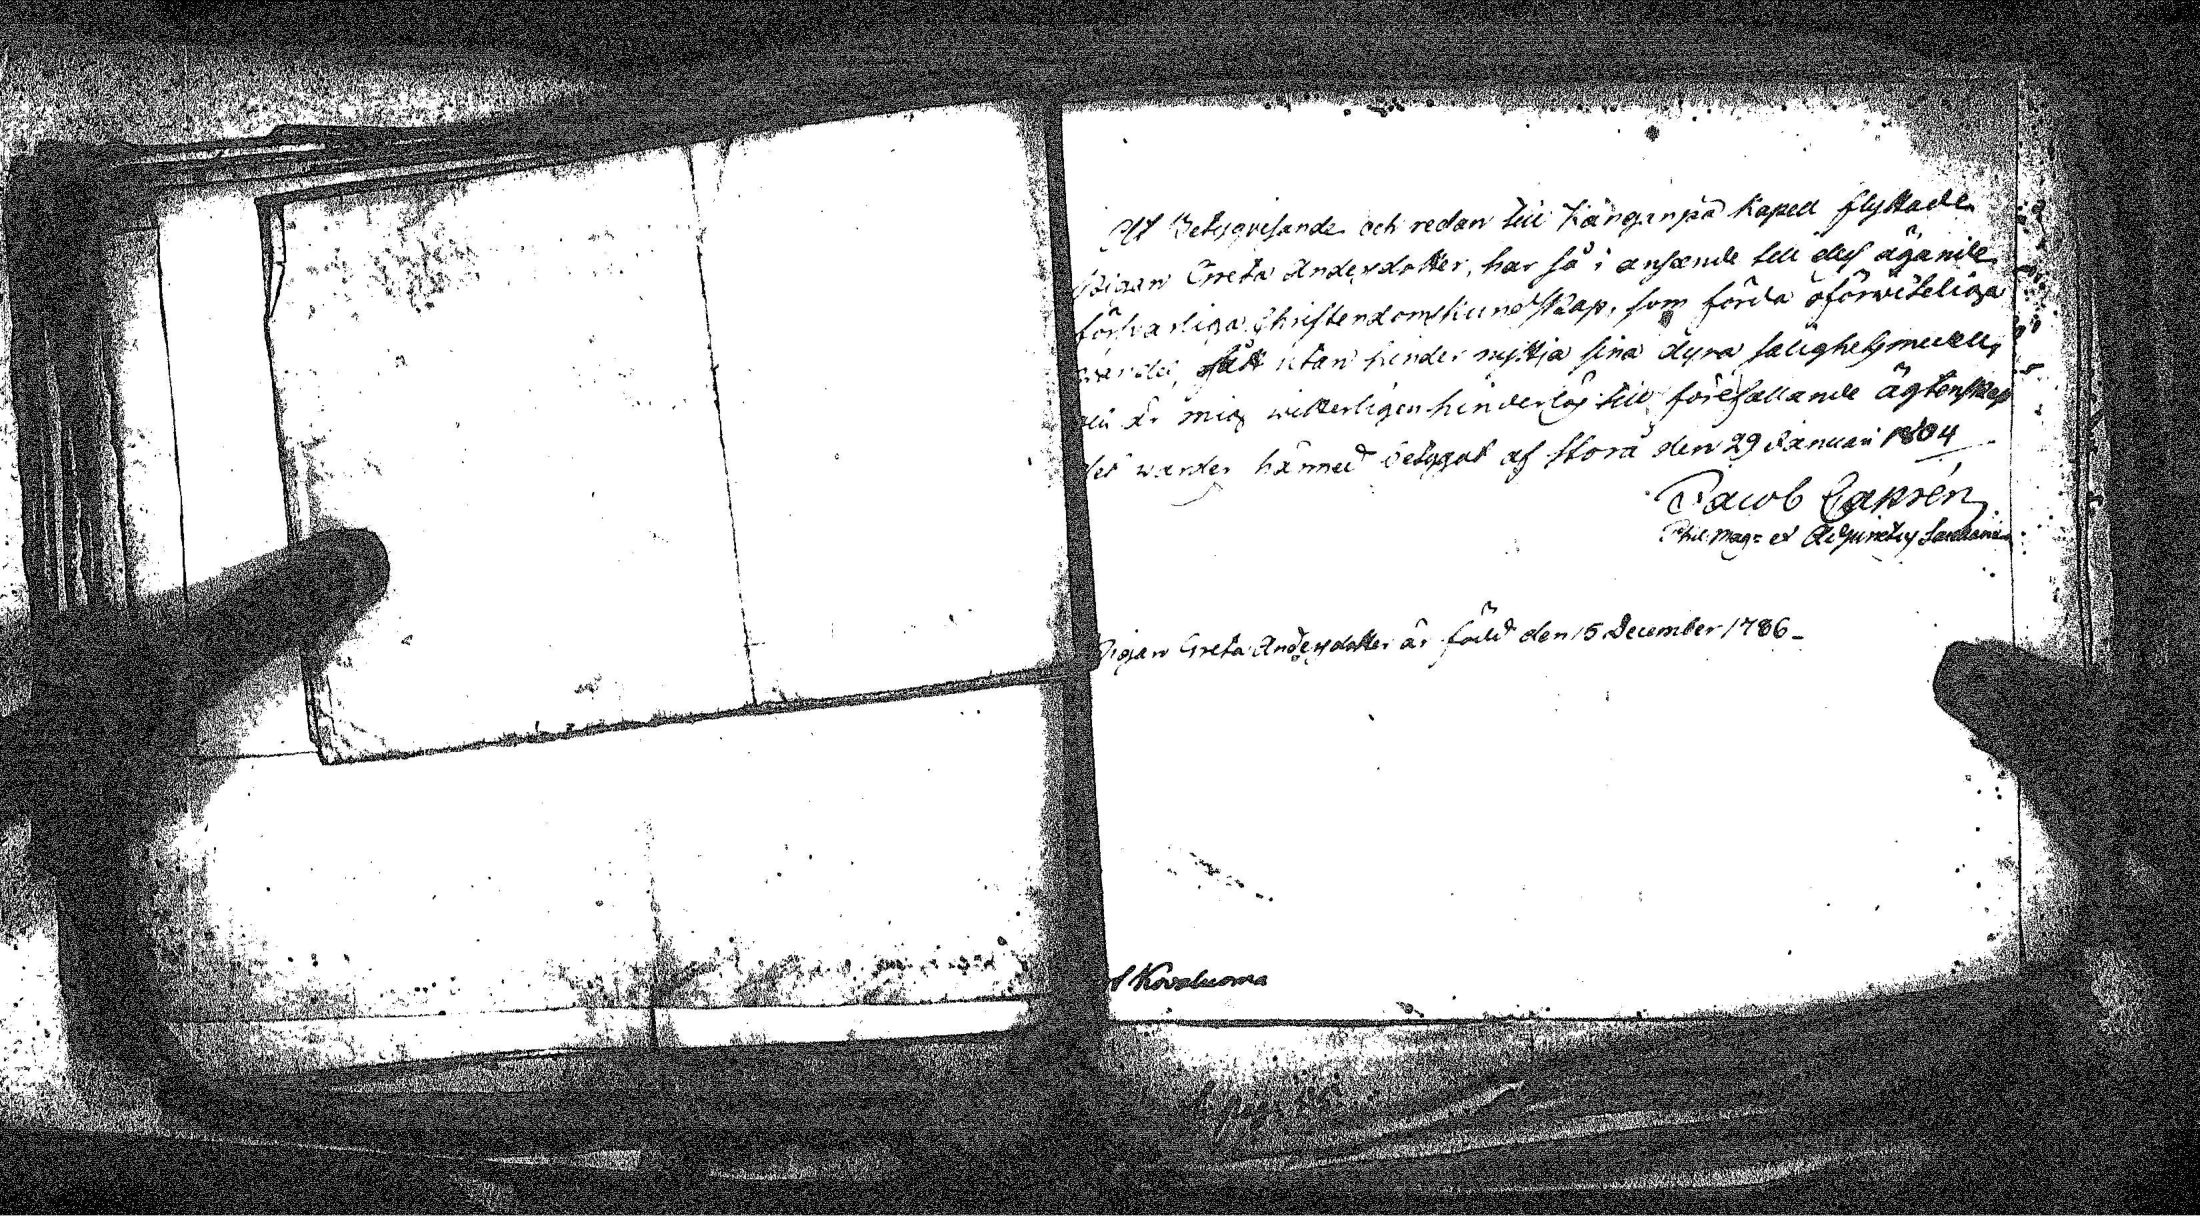 At Betygvisande och redan till Kånganpä Kapell flyttade
Pigan Greta Andersdotter, har så i anseende till dess ägande
försvarliga Christendomskundskap, som förda oförwiteliga
fått utan hinder nyttja sina dyra salighetsmedell,
är mig witterligen hinderlös till förefallande ägtenskap
det warder härmed betygat af Storå den 29 Januari 1804
Jacob
Phil. Mag: et Adjunctus
Pigan Greta Andersdotter är född den 15 December 1786